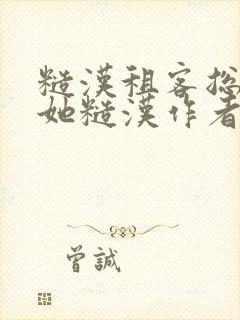 糙漢租客總
她糙漢作者
曾誠